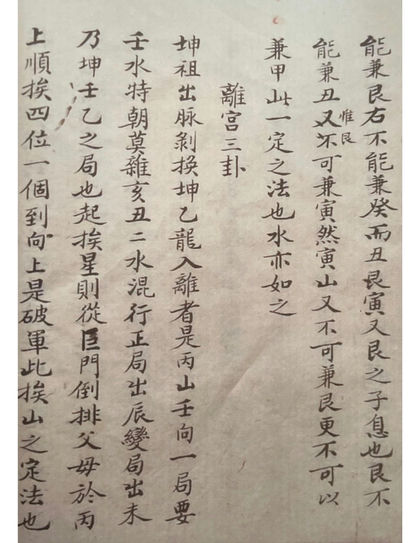 能兼艮右不能兼癸而丑艮寅又艮之子息也艮不
能兼丑又惟艮不可兼寅然寅山又不可兼艮更不可以
兼甲山此一定之法也水亦如之
離宮三卦
坤祖出脉剝換坤乙龍入離者是丙山壬向一局要
壬水特朝莫雜亥丑二水混行正局出辰變局出未
乃坤壬乙之局也起挨星則從巨門倒排父母於丙
上順挨四位一個到向上是破軍此挨山之定法也